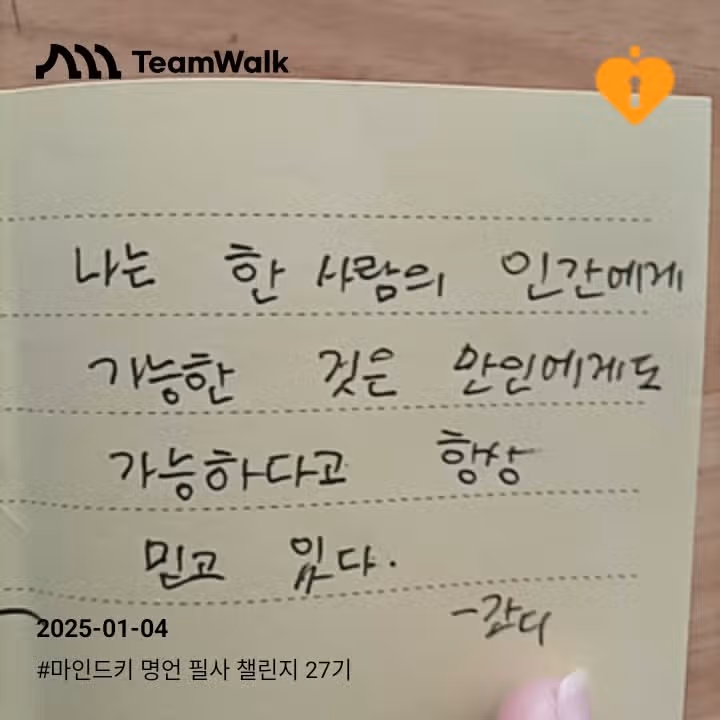 TeamWalk
나는 한 사람의 인간에게
가능한 것은 만인에게도
가능하다고 항상
믿고 있다.
-간디
2025-01-04
#마인드키 명언 필사 챌린지 27기